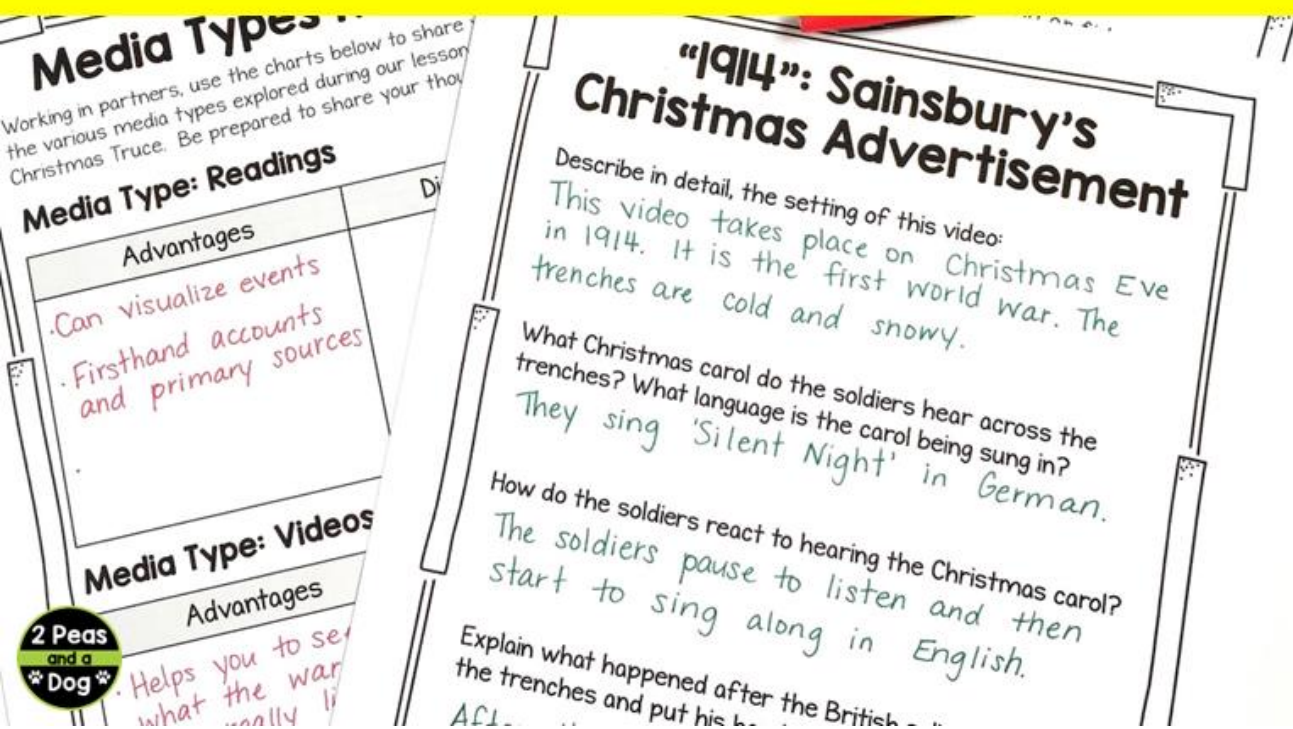 Media Types
Working in partners, use the charts below to share
the various media types explored during our lesson
Christmas Truce. Be prepared to share your
Media Type: Readings
Advantages
.Can visualize events
. Firsthand accounts
and primary sources
.
Media Type: Videos
Advantages
. Helps you to
what the
2 Peas
and a
Dog
"1914": Sainsbury's
Christmas Advertisement
Describe in detail, the setting of this video:
This video takes place on Christmas Eve
in 1914. It is the first world war. The
trenches are cold and snowy.
What Christmas carol do the soldiers hear across the
trenches? What language is the carol being sung in?
They sing 'Silent Night' in German.
How do the soldiers react to hearing the Christmas carol?
The soldiers pause to listen and then
start to sing along in English.
Explain what happened after the British
the trenches and put his